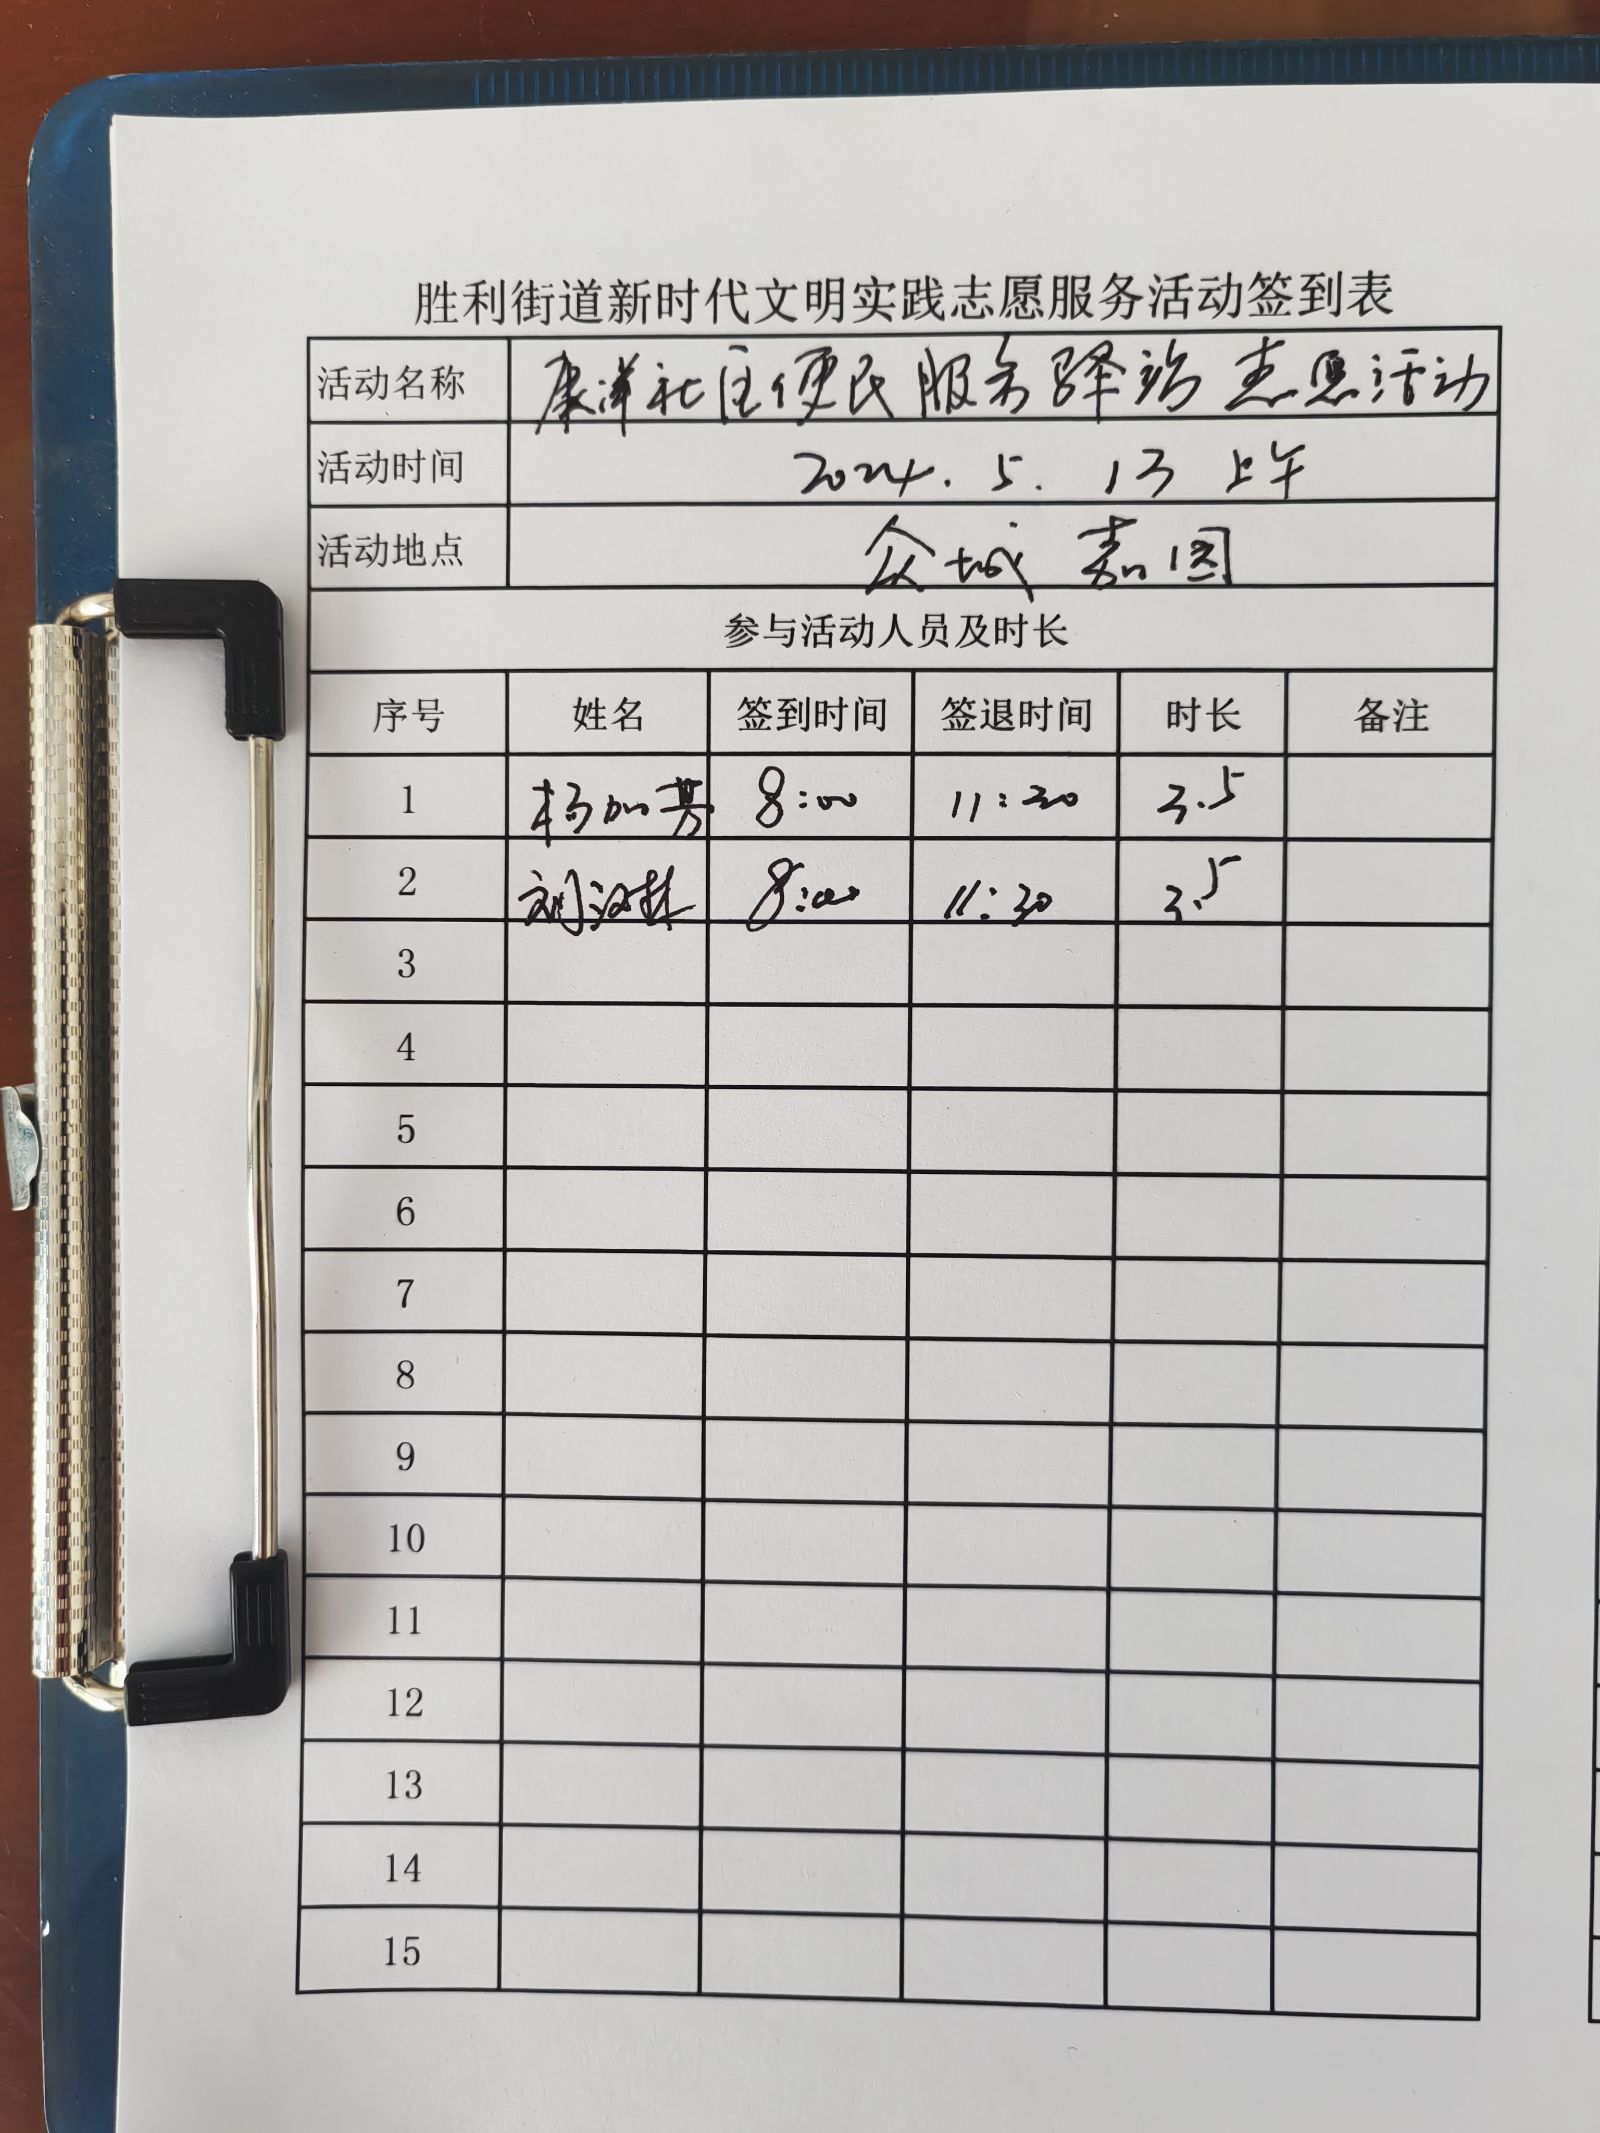 胜利街道新时代文明实践志愿服务活动签到表
活动名称 康洋社区便民服务驿站志愿活动
活动时间 2024.5.13 上午
活动地点 众城嘉园
参与活动人员及时长
序号 姓名 签到时间 签退时间 时长 备注
1 杨加 8:00 11:30 3.5
2 刘汉林 8:00 11:30 3.5
3
4
5
6
7
8
9
10
11
12
13
14
15